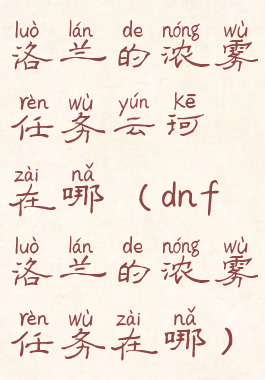 luò lán de nóng wù
洛兰的浓雾
rèn wù yún kē
任务云珂
zài nǎ
在哪（dnf
luò lán de nóng wù
洛兰的浓雾
rèn wù zài nǎ
任务在哪）